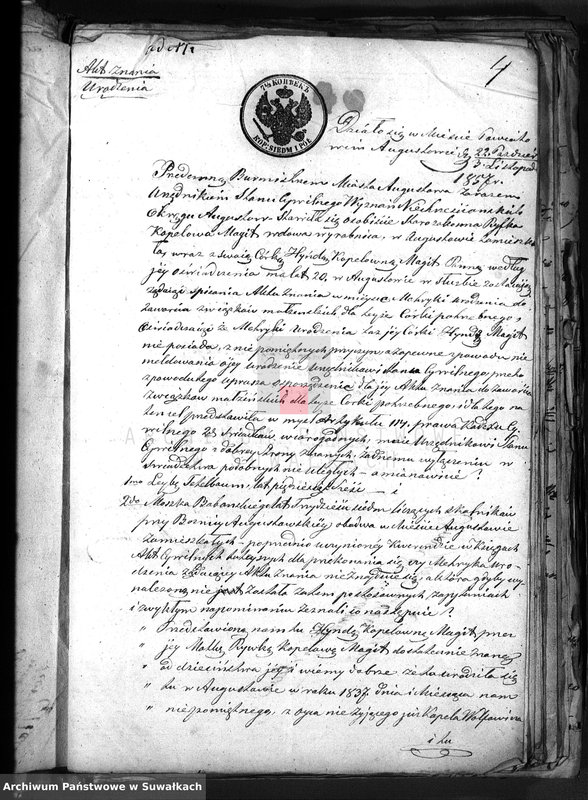 ad N 1
4
Akt Znania
Urodzenia
7½ КОПѢЕКЪ
KOP. SIEDM I PÓŁ
Działo się w Mieście Powiato
wem Augustowie D. 22 Paździer
3 Listopad
1857 r.
Przedemną Burmistrzem Miasta Augustowa zarazem
Urzędnikiem Stanu Cywilnego Wyznań Niechrześciańskich
Okręgu Augustow. Stawiła się osobiście Starozakonna Ryfka
Kopelowa Magit wdowa wyrobnica, w Augustowie zamieszka
ła, wraz z swoią Córką Hyndą Kopelowną Magit Panną według
jey oświadczenia ma lat 20, w Augustowie w służbie zostającą
żądając spisania Aktu Znania w miejsce Metryki urodzenia do
zawarcia związków małżeńskich dla teyże Córki potrzebnego i
oświadczając że Metryki Urodzenia taż jey Córka Hynda Magit
nie posiada, z niepomiętnych przyczyn a zapewne z powodu nie
meldowania o jey urodzeniu Urzędnikowi Stanu Cywilnego, prze to
z powodu tego uprasza o sporządzenie dla jey Aktu Znania do zawarcia
związków małżeńskich dla teyże Córki potrzebnego i dla tego na
ten cel przedstawiła w myśl Artykułu 114 prawa Kodexu Cy
wilnego 2ch Świadków wiarogodnych, mnie Urzędnikowi Stanu
Cywilnego z dobrey strony znanych, żadnemu wyłączeniu w
Świadectwa podobnych nie uległych – a mianowicie?
1mo Leyby lat pięćdziesiąt Sześć – i
2do Moszka Babańskiego lat Trzydzieści siedem liczących szkolników
przy Bożnicy Augustowskiey obadwa w Mieście Augustowie
zamieszkałych – poprzednio uczynioney Kwerendzie w Księgach
Akt Cywilnych tuteyszych dla przekonania się czy Metryka Uro-
dzenia żądaiącey Aktu Znania nie znayduie się, a która gdyby wy
nalezioną nie została zatem po stosownych zapytaniach
i zwykłym napomnieniu zeznali co następuie?
" Przedstawioną nam tu Hyndę Kopelownę Magit przez
" jey Matkę Rywkę Kopelową Magit doskonale znamy
" od dzieciństwa jey i wiemy dobrze że ta urodziła się
" tu w Augustowie w roku 1837 dnia i Miesiąca nam
" niepomiętnego, z oyca nie żyjącego już Kopela Wolfowicza
i tu
Archiwum Państwowe w Suwałkach